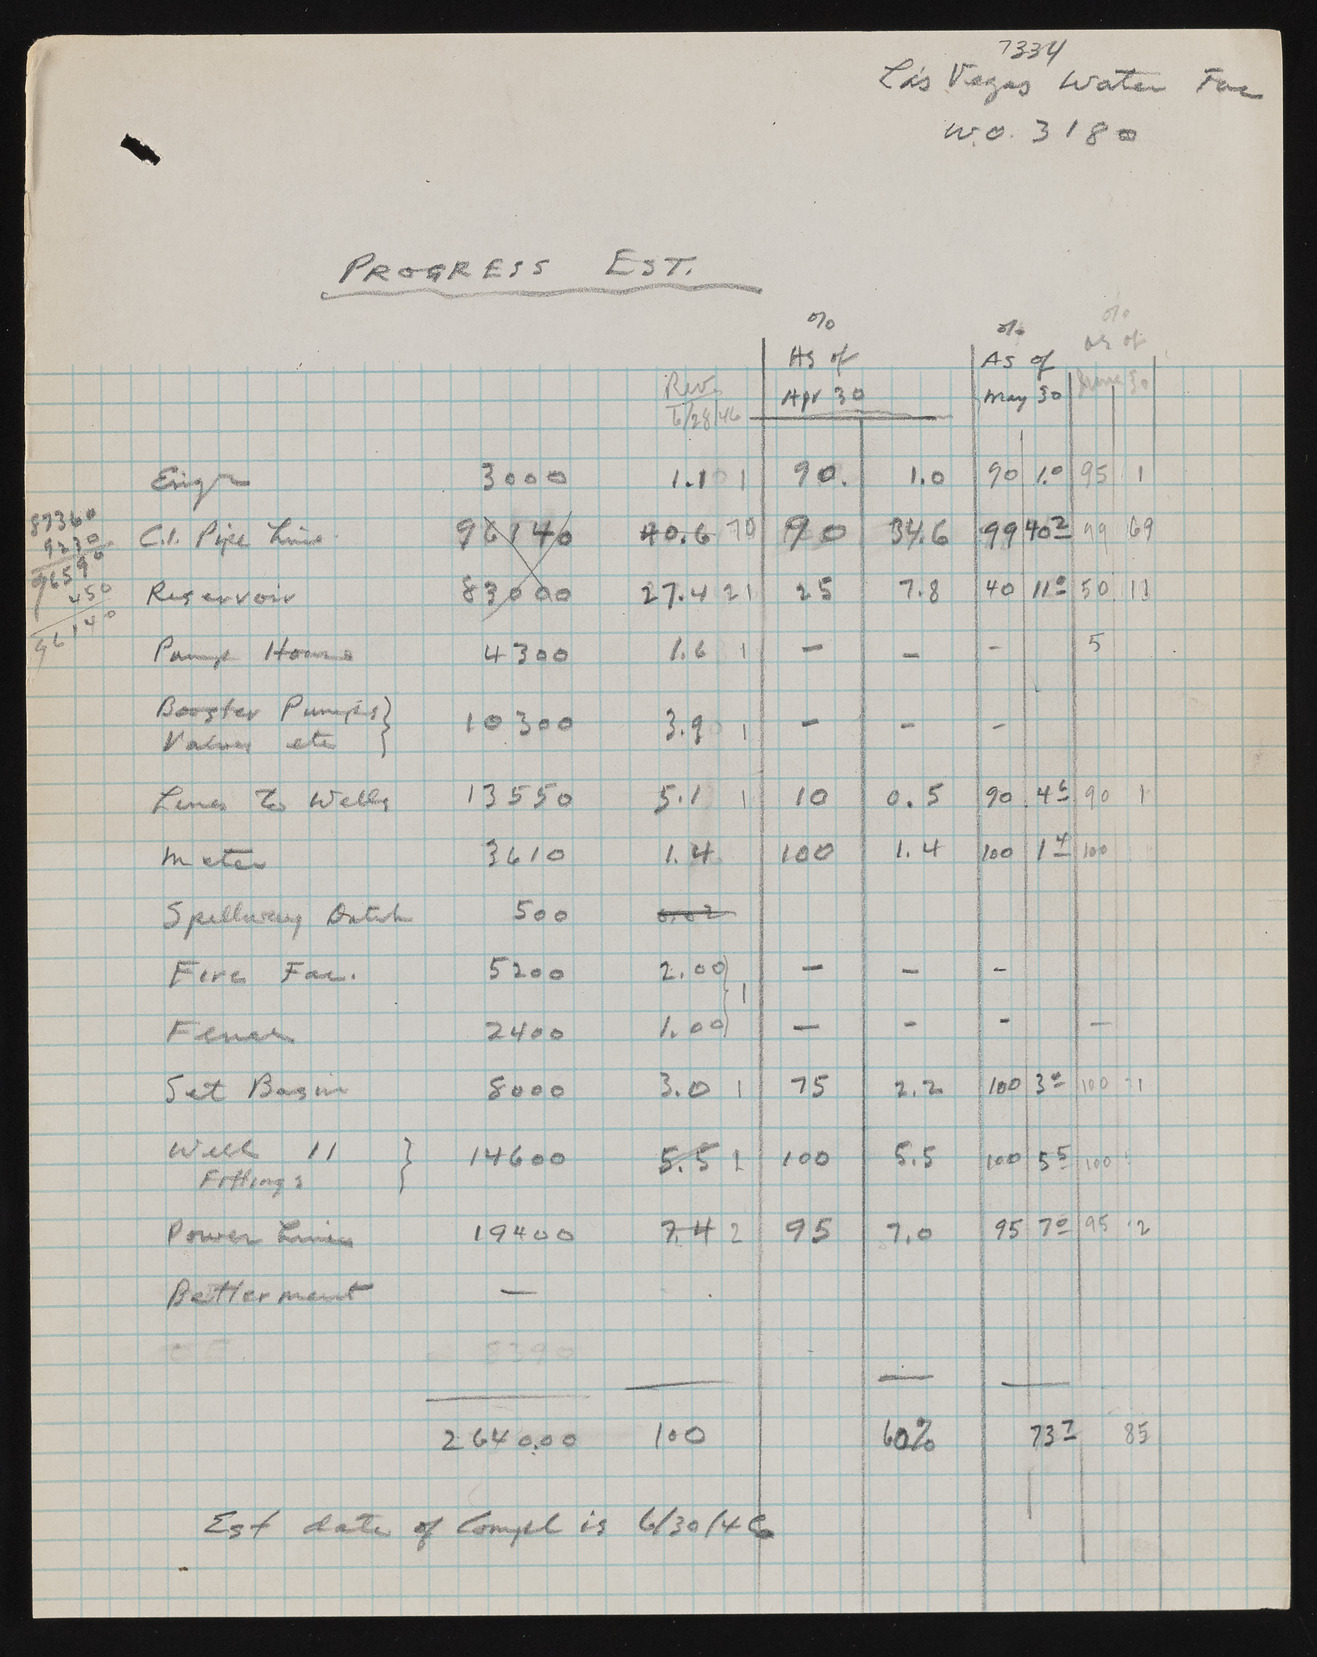 7334
Las Vegas Water Fac
W.O. 3180
PROGRESS EST.
% % %
As of As of as of
Rev. Apr 30 May 30 June 30
6/28/46
Engr 3000 1.1 1 90. 1.0 90 1.0 95 1
87360
9230
96590
450
96140
C.I. Pipe Line 96140 40.6 70 90 34.6 99 40 2 99 69
Reservoir 83000 27.4 21 25 7.8 40 11 0 50 11
Pump House 4300 1.6 1 — — — 5
Booster Pumps }
Valves etc } 10300 3.9 1 — — —
Lines To Wells 13550 5.1 1 10 0.5 90 4 6 90 1
Meter 3610 1.4 100 1.4 100 1 4 100
Spillway Ditch 500 0.02
Fire Fac. 5200 2.00 } — — —
1
Fence 2400 1.00 } — — — —
Set Basin 8000 3.0 1 75 2.2 100 3 0 100 1
Well 11 } 14600 5.5 1 100 5.5 100 5 5 100
Fittings
Power Lines 19400 7.4 2 95 7.0 95 7 0 95 2
Betterment —
8390
264000 100 60% 73 7 85
Est date of Compl is 6/30/46